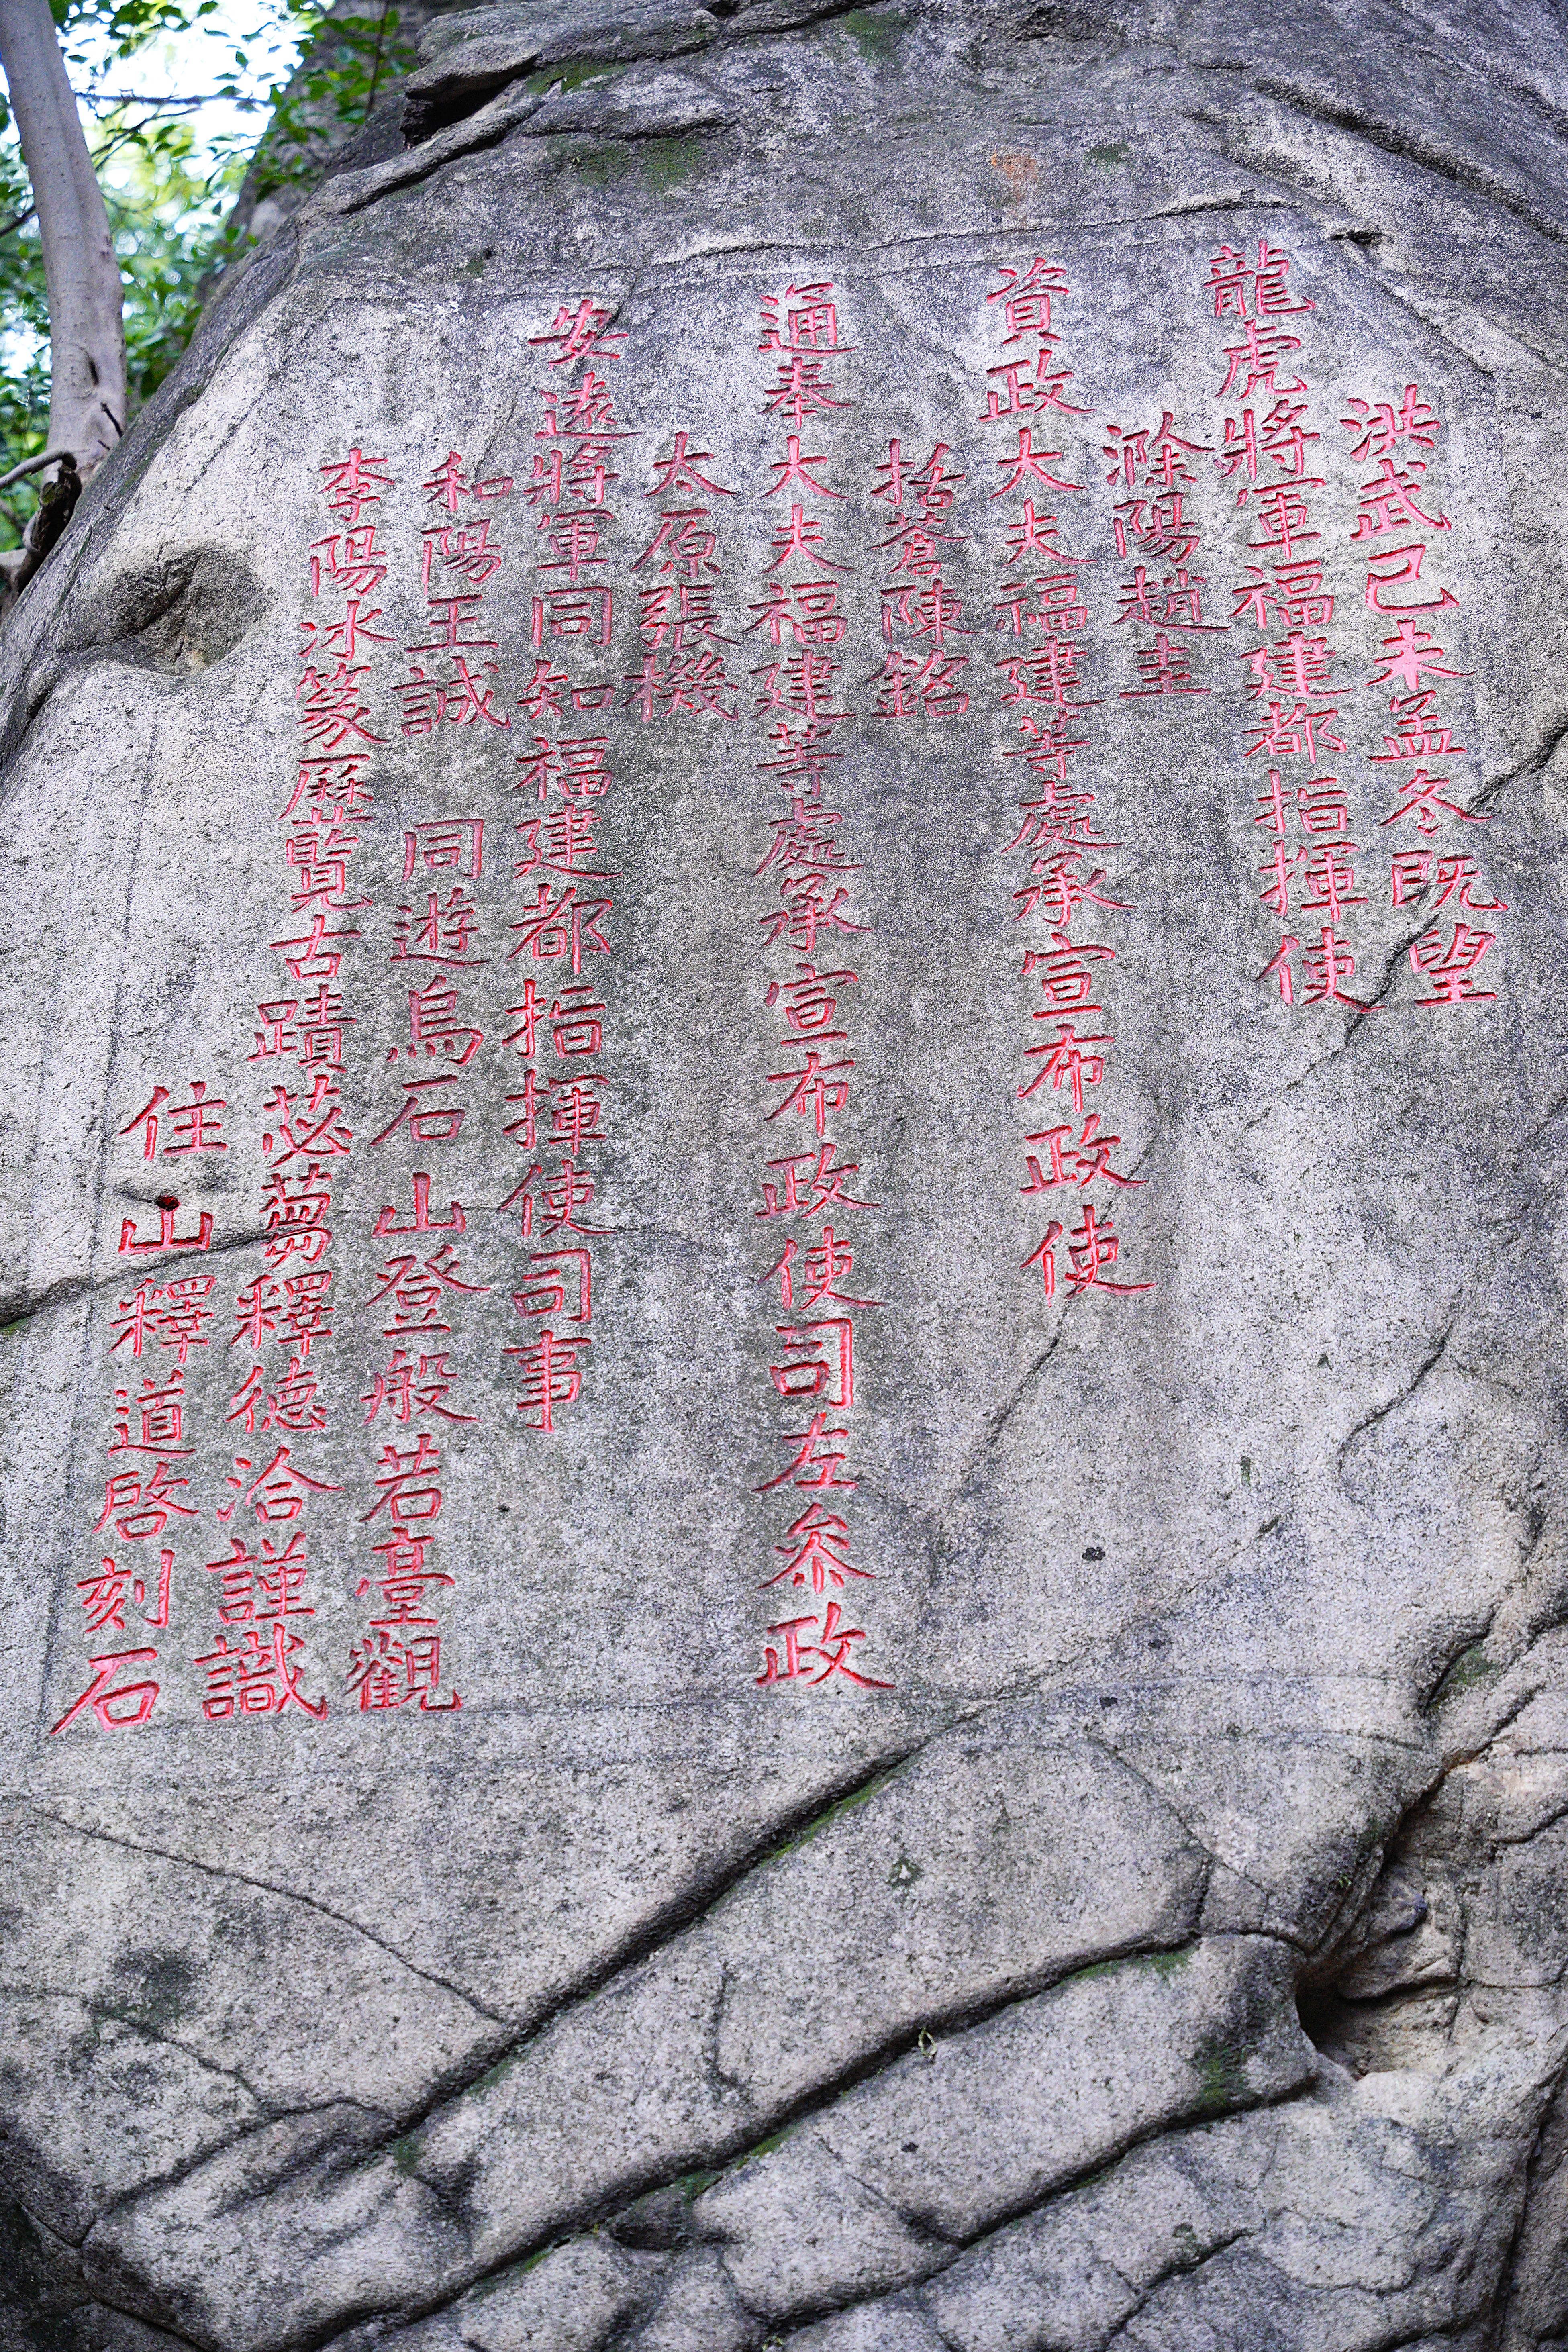 洪武己未孟冬既望
龍虎將軍福建都指揮使
滁陽趙圭
資政大夫福建等處承宣布政使
括蒼陳銘
通奉大夫福建等處承宣布政使司左參政
太原張機
安遠將軍同知福建都指揮使司事
和陽王誠 同遊烏石山登般若臺觀
李陽冰篆歷覽古蹟苾蒭釋德洽謹識
住山釋道啓刻石